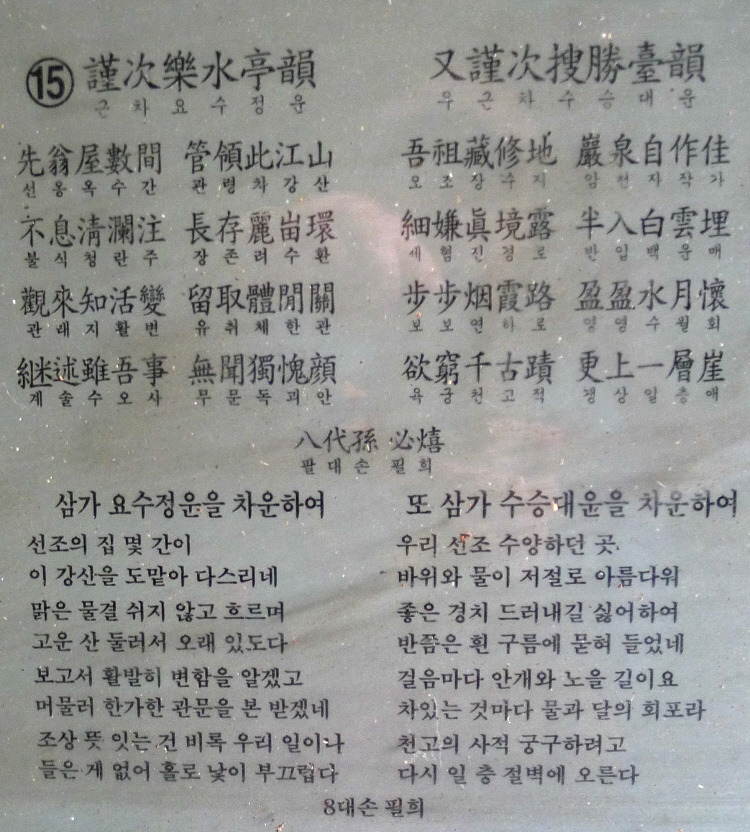 ⑮ 謹次樂水亭韻
근차요수정운
先翁屋數間 管領此江山
선옹옥수간 관령차강산
不息淸瀾注 長存麗峀環
불식청란주 장존려수환
觀來知活變 留取體閒關
관래지활변 유취체한관
継述雖吾事 無聞獨愧顔
계술수오사 무문독괴안
又謹次搜勝臺韻
우근차수승대운
吾祖藏修地 巖泉自作佳
오조장수지 암천자작가
細嫌眞境露 半入白雲埋
세혐진경로 반입백운매
步步烟霞路 盈盈水月懷
보보연하로 영영수월회
欲窮千古蹟 更上一層崖
욕궁천고적 갱상일층애
八代孫 必熺
팔대손 필희
삼가 요수정운을 차운하여
선조의 집 몇 간이
이 강산을 도맡아 다스리네
맑은 물결 쉬지 않고 흐르며
고운 산 둘러서 오래 있도다
보고서 활발히 변함을 알겠고
머물러 한가한 관문을 본 받겠네
조상 뜻 잇는 건 비록 우리 일이나
들은 게 없어 홀로 낯이 부끄럽다
또 삼가 수승대운을 차운하여
우리 선조 수양하던 곳.
바위와 물이 저절로 아름다워
좋은 경치 드러내길 싫어하여
반쯤은 흰 구름에 묻혀 들었네
걸음마다 안개와 노을 길이요
차있는 것마다 물과 달의 회포라
천고의 사적 궁구하려고
다시 일 층 절벽에 오른다
8대손 필희